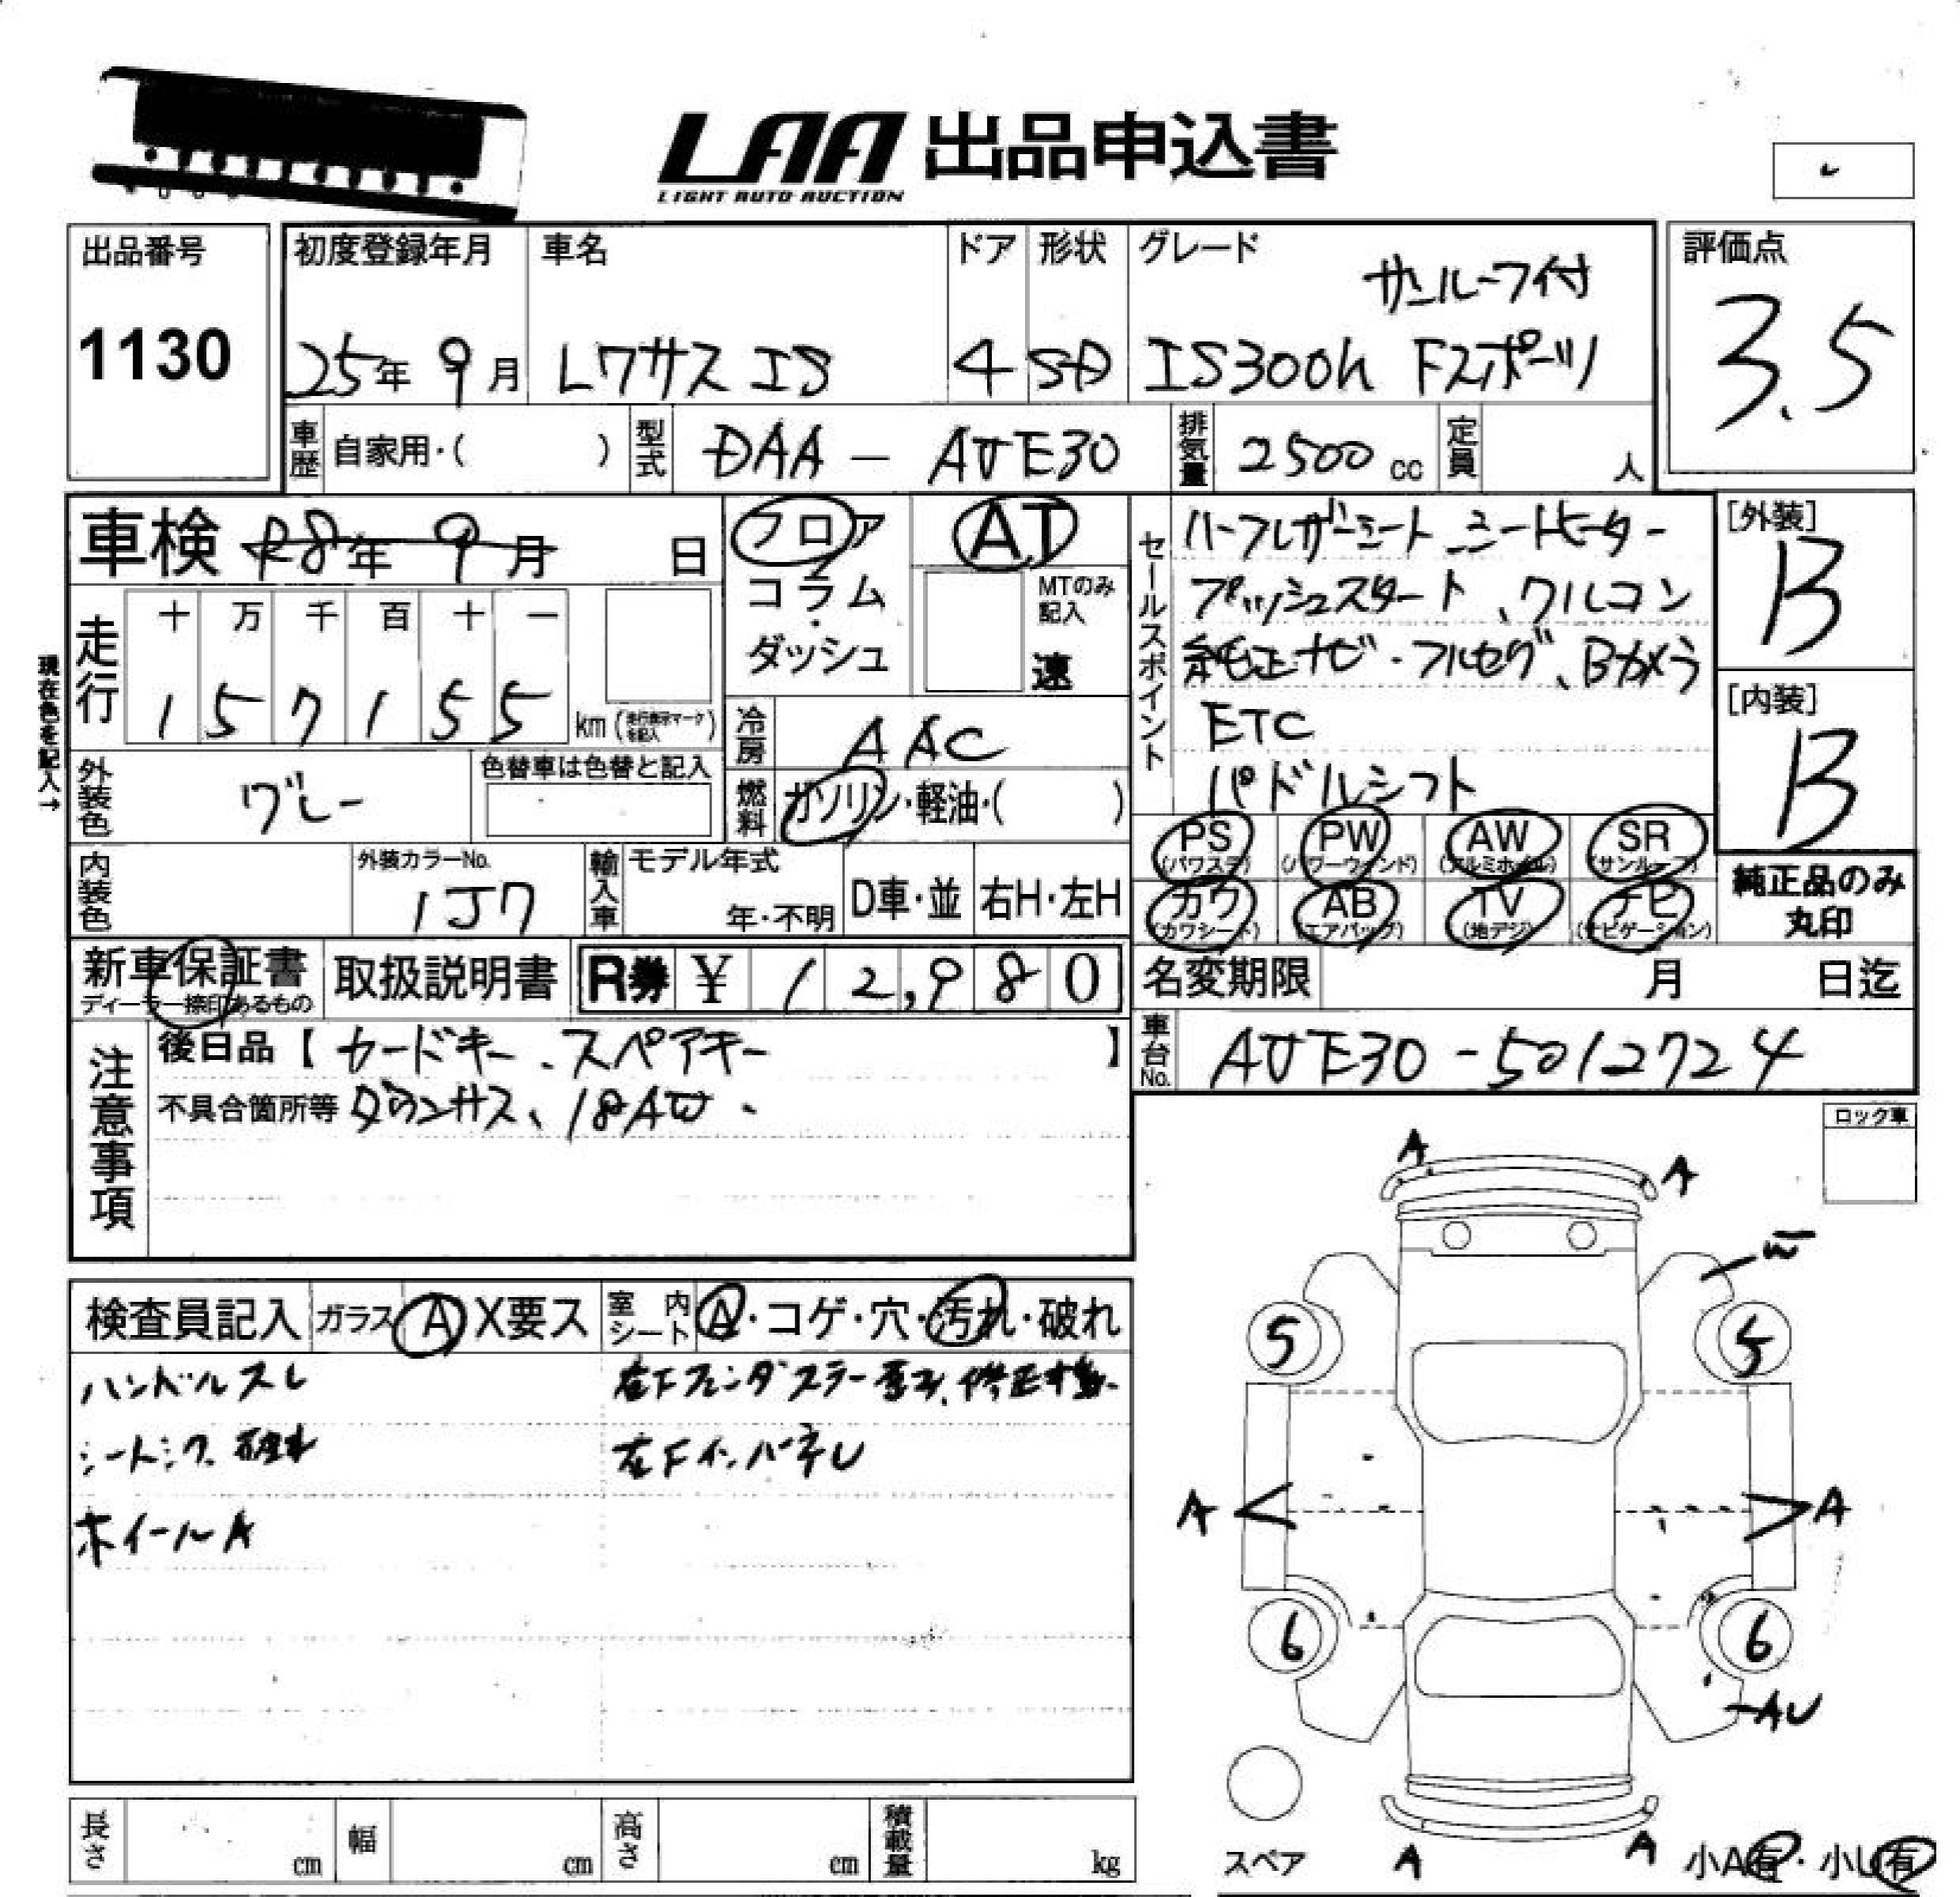 LAA 出品申込書
LIGHT AUTO AUCTION
出品番号
1130
初度登録年月
25年 9月
車名
レクサス IS
ドア
4
形状
SD
グレード
サンルーフ付
IS300h Fスポーツ
評価点
3.5
車歴 自家用・( )
型式 DAA - AVE30
排気量 2500 cc
定員 人
車検 R8年 9月 日
フロア
コラム
・
ダッシュ
AT
MTのみ
記入
速
セールスポイント
ハーフレザーシート シートヒーター
プッシュスタート、クルコン
純正ナビ・フルセグ、Bカメラ
ETC
パドルシフト
[外装]
B
[内装]
B
現在色を記入→
走行
十 万 千 百 十 一
1 5 7 1 5 5 km (走行表示マークを記入)
冷房 AAC
燃料 ガソリン・軽油・( )
外装色 グレー
色替車は色替と記入
PS (パワステ)
PW (パワーウィンド)
AW (アルミホイル)
SR (サンルーフ)
カワ (カワシート)
AB (エアバック)
TV (地デジ)
ナビ (ナビゲーション)
純正品のみ
丸印
内装色
外装カラーNo.
1J7
輸入車
モデル年式
年・不明
D車・並
右H・左H
新車保証書
ディーラー捺印あるもの
取扱説明書
R券 ¥ 12,980
名変期限 月 日迄
注意事項
後日品【 カードキー、スペアキー 】
不具合箇所等 ダウンサス、18AW、
車台No. AVE30-5012724
ロック車
検査員記入
ガラス A X要ス
室内シート A・コゲ・穴・汚れ・破れ
ハンドルスレ
シートシワ、破れ
ホイールA
左Fインパネレ
A
A
W
5
5
A
A
6
6
AU
A
A
スペア
小A有・小U有
長さ cm
幅 cm
高さ cm
積載量 kg